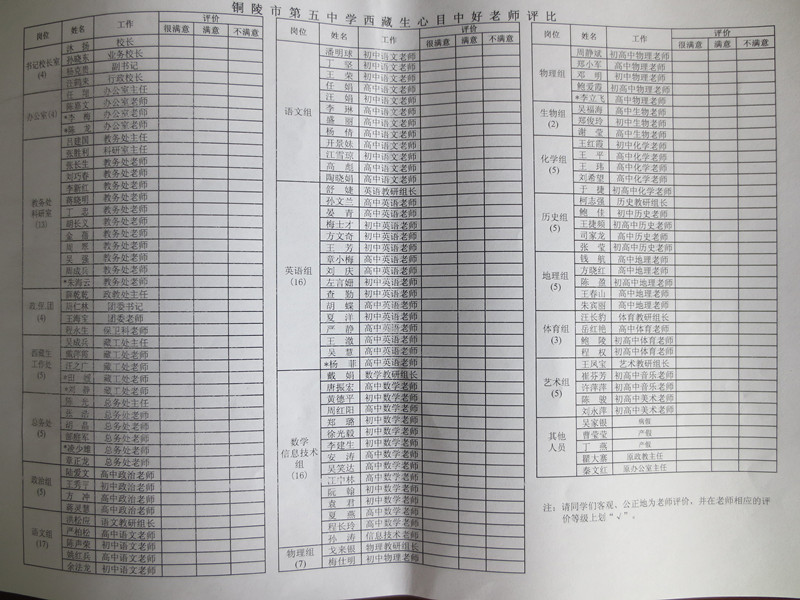 铜陵市第五中学西藏生心目中好老师评比
岗位 姓名 工作 评价
很满意 满意 不满意
书记校长室
(4)
校长
孙晓东 业务校长
副书记
行政校长
办公室(4)
办公室主任
陈嘉文 办公室老师
*李 梅 办公室老师
*陈 龙 办公室老师
教务处
科研室
(13)
教务处主任
科研室主任
张长生 教务处老师
刘巧春 教务处老师
李新红 教务处老师
蒋晓明 教务处老师
丁 志 教务处老师
教务处老师
金 霞 教务处老师
教务处老师
吴 强 教务处老师
教务处老师
*朱海云 教务处老师
政保团
(4)
政教处主任
团委书记
团委老师
程永生 保卫科老师
西藏生
工作处
(5)
吴成兵 藏工处主任
藏工处老师
藏工处老师
藏工处老师
藏工处老师
总务处
(5)
总务处主任
总务处老师
胡 晶 总务处老师
总务处老师
*凌少雄 总务处老师
章正龙 总务处老师
政治组
(5)
陆爱文 高中政治老师
王秀宁 初中政治老师
方 冲 高中政治老师
蒋灵慧 高中政治老师
语文组
(17)
洪松应 语文教研组长
严柏松 高中语文老师
陈芦荣 初中语文老师
姚红兵 高中语文老师
余法龙 初中语文老师
岗位 姓名 工作 评价
很满意 满意 不满意
语文组
潘明球 初中语文老师
丁 坚 初中语文老师
王 荣 初中语文老师
任 娟 高中语文老师
汪 娟 初中语文老师
李 琳 高中语文老师
盛 丽 高中语文老师
杨 倩 初中语文老师
开景妹 初中语文老师
江雪琼 初中语文老师
高 彪 高中语文老师
陶晓娟 高中语文老师
英语组
(16)
舒 婕 英语教研组长
孙文兰 高中英语老师
晏 青 高中英语老师
梅士才 初中英语老师
方文奇 初中英语老师
王 芳 初中英语老师
章小梅 高中英语老师
刘 庆 高中英语老师
左言姗 初中英语老师
查 勤 初中英语老师
胡 蝶 高中英语老师
夏 洋 初中英语老师
严 静 高中英语老师
王 激 高中英语老师
吴 慧 高中英语老师
*杨 菲 高中英语老师
数学
信息技术
组
(16)
戴 娟 数学教研组长
唐振宏 高中数学老师
黄德平 初中数学老师
周红阳 高中数学老师
郑 璐 初中数学老师
徐光毅 初中数学老师
李建生 初中数学老师
安 涛 高中数学老师
吴笑达 高中数学老师
江宁林 初中数学老师
阮 翰 初中数学老师
袁 君 初中数学老师
夏 燕 高中数学老师
程长玲 高中数学老师
孙 涛 信息技术老师
物理组
(7)
戈来银 物理教研组长
梅仕明 初中物理老师
岗位 姓名 工作 评价
很满意 满意 不满意
物理组
周静斌 初高中物理老师
郑小军 高中物理老师
邓 明 初中物理老师
鲍爱霞 初高中物理老师
*李立飞 高中物理老师
生物组
(2)
吴福海 高中生物老师
郑俊玲 初中生物老师
化学组
(5)
谢 莹 高中生物老师
王红霞 初中化学老师
王 平 高中化学老师
王 玮 高中化学老师
刘希望 高中化学老师
于 捷 初高中化学老师
历史组
(5)
柯志强 历史教研组长
鲍 佳 初中历史老师
初中历史老师
司家龙 高中历史老师
张 莹 初高中历史老师
地理组
(5)
钱 航 高中地理老师
方晓红 高中地理老师
陈 盈 初高中地理老师
王春山 高中地理老师
朱宾丽 高中地理老师
体育组
(3)
汪长豹 体育教研组长
岳红艳 高中体育老师
鲍 陵 初高中体育老师
程 权 初高中体育老师
艺术组
(5)
王凤宝 艺术教研组长
崔芬芳 初高中音乐老师
许萍萍 初高中音乐老师
陈 骏 初高中美术老师
刘永萍 初高中美术老师
其他
人员
吴家银 病假
曹莹莹 产假
丁 燕 产假
瞿大寨 原政教主任
秦文红 原办公室主任
注：请同学们客观、公正地为老师评价，并在老师相应的评
价等级上划“√”。